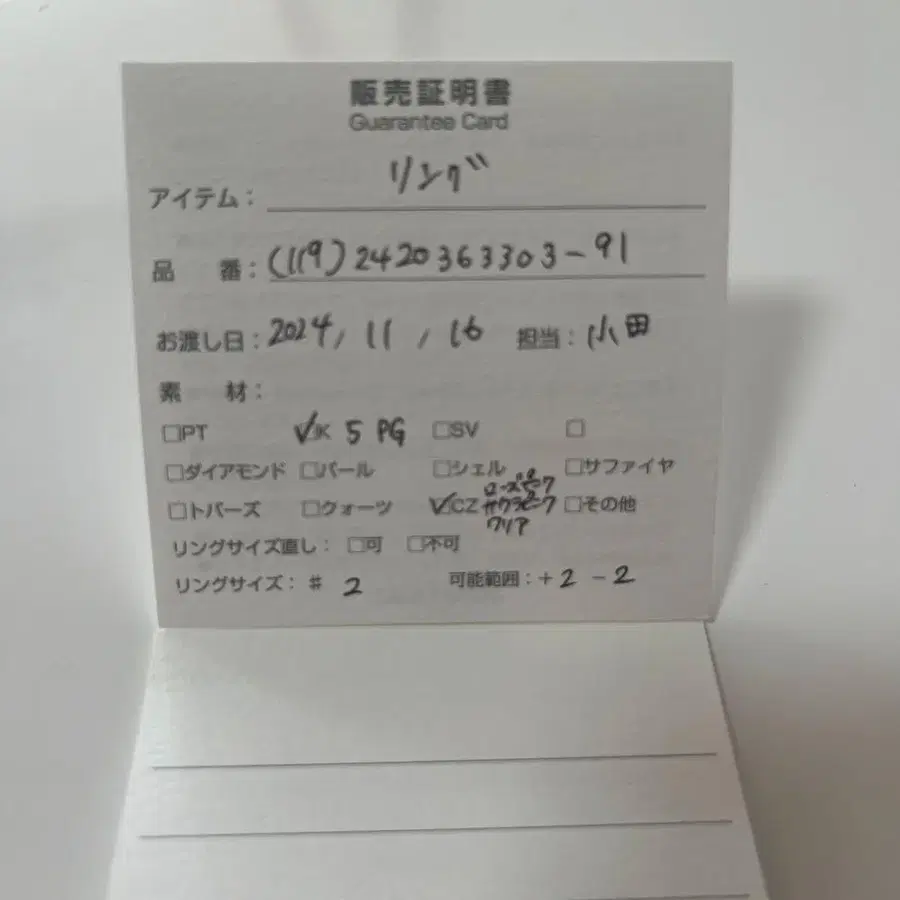 販売証明書
Guarantee Card
アイテム： リング
品　番：(119) 2420363303-91
お渡し日：2024/11/16 担当：小田
素　材：
□PT ☑K 5 PG □SV □
□ダイアモンド □パール □シェル □サファイヤ
ローズピンク
□トパーズ □クォーツ ☑CZ サクラピンク □その他
クリア
リングサイズ直し： □可 □不可
リングサイズ：# 2 可能範囲：+2 -2